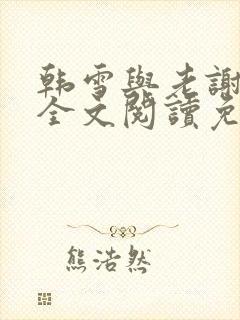 韩雪與老謝
全文閱讀免
熊浩然